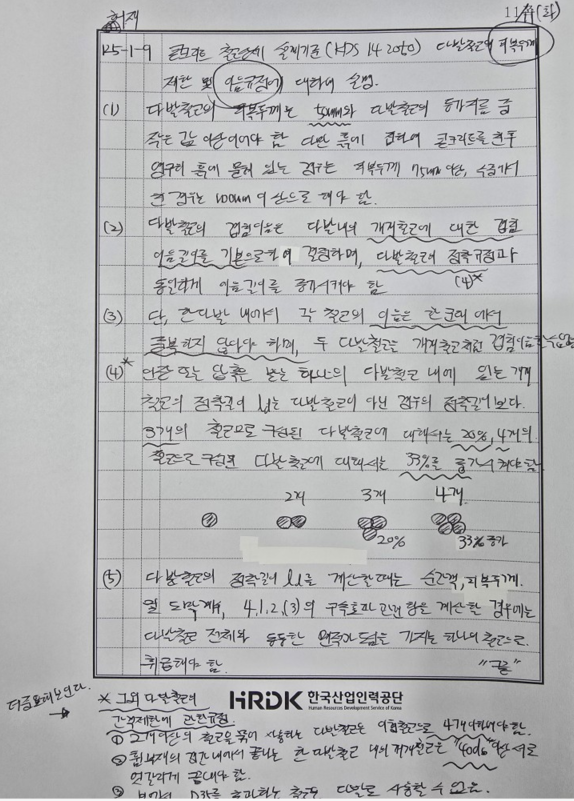 현재
11/4(화)
125-1-9 콘크리트 철근상세 설계기준(KDS 14 20 50) 다발철근의 피복두께
제한 및 이음규정에 대하여 설명.
(1) 다발철근의 피복두께는 50mm와 다발철근의 등가지름 중
작은 값 이상이어야 함 다만 흙에 접하여 콘크리트를 친후
영구히 흙에 묻혀 있는 경우는 피복두께 75mm 이상, 수중에서
친 경우는 100mm 이상으로 해야 함.
(2) 다발철근의 겹침이음은 다발내의 개개철근에 대한 겹침
이음길이를 기본으로하여 결정하며, 다발철근의 정착규정과
동일하게 이음길이를 증가시켜야 함 (4)*
(3) 단, 한다발 내에서 각 철근의 이음은 한곳에서
중복하지 않아야 하며, 두 다발철근은 개개철근처럼 겹침이음할 수 없음
(4)* 인장 또는 압축을 받는 하나의 다발철근 내에 있는 개개
철근의 정착길이 ld는 다발철근이 아닌 경우의 정착길이보다.
3개의 철근으로 구성된 다발철근에 대해서는 20%, 4개의
철근으로 구성된 다발철근에 대해서는 33%를 증가시켜야 함.
2개 3개 4개
20% 33% 증가
(5) 다발철근의 정착길이 ld를 계산할때는 순간격, 피복두께.
및 도막계수, 4.1.2.(3)의 구속효과 관련 항을 계산할 경우에는
다발철근 전체와 동등한 단면적과 도심을 가지는 하나의 철근으로.
취급해야 함. "끝"
HRDK 한국산업인력공단
Human Resources Development Service of Korea
* 그외 다발철근의
간격제한에 관한규정
① 2개이상의 철근을 묶어 사용하는 다발철근은 이형철근으로 4개이하이어야 함.
② 휨부재의 경간내에서 끝나는 한 다발철근 내의 개개철근은 "40db" 이상 서로
엇갈리게 끝내야 함.
③ 보에서 D35를 초과하는 철근은 다발로 사용할 수 없음.